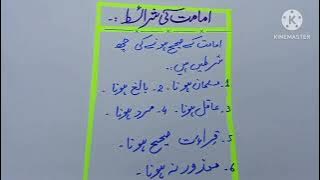 امامت کی شرائط :-
امامت کے صحیح ہونے کی چھ
شرطیں ہیں :-
1- مسلمان ہونا - 2- بالغ ہونا -
3- عاقل ہونا - 4- مرد ہونا -
5- قراءت صحیح ہونا -
6- معذور نہ ہونا -
KINEMASTER